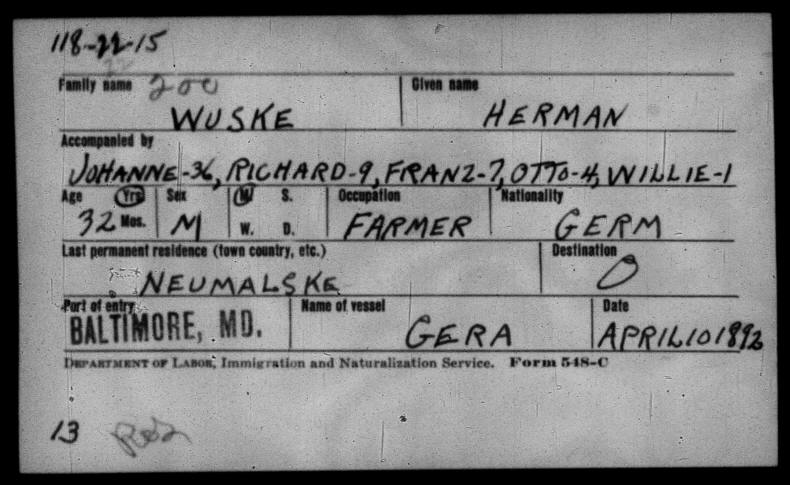 118-22-15
22
Family name 200 Given name
WUSKE HERMAN
Accompanied by
JOHANNE-36, RICHARD-9, FRANZ-7, OTTO-4, WILLIE-1
Age Yrs. Sex M. S. Occupation Nationality
32 Mos. M W. D. FARMER GERM
Last permanent residence (town country, etc.) Destination
NEUMALSKE O
Port of entry Name of vessel Date
BALTIMORE, MD. GERA APRIL 10 1892
DEPARTMENT OF LABOR, Immigration and Naturalization Service. Form 548-C
13